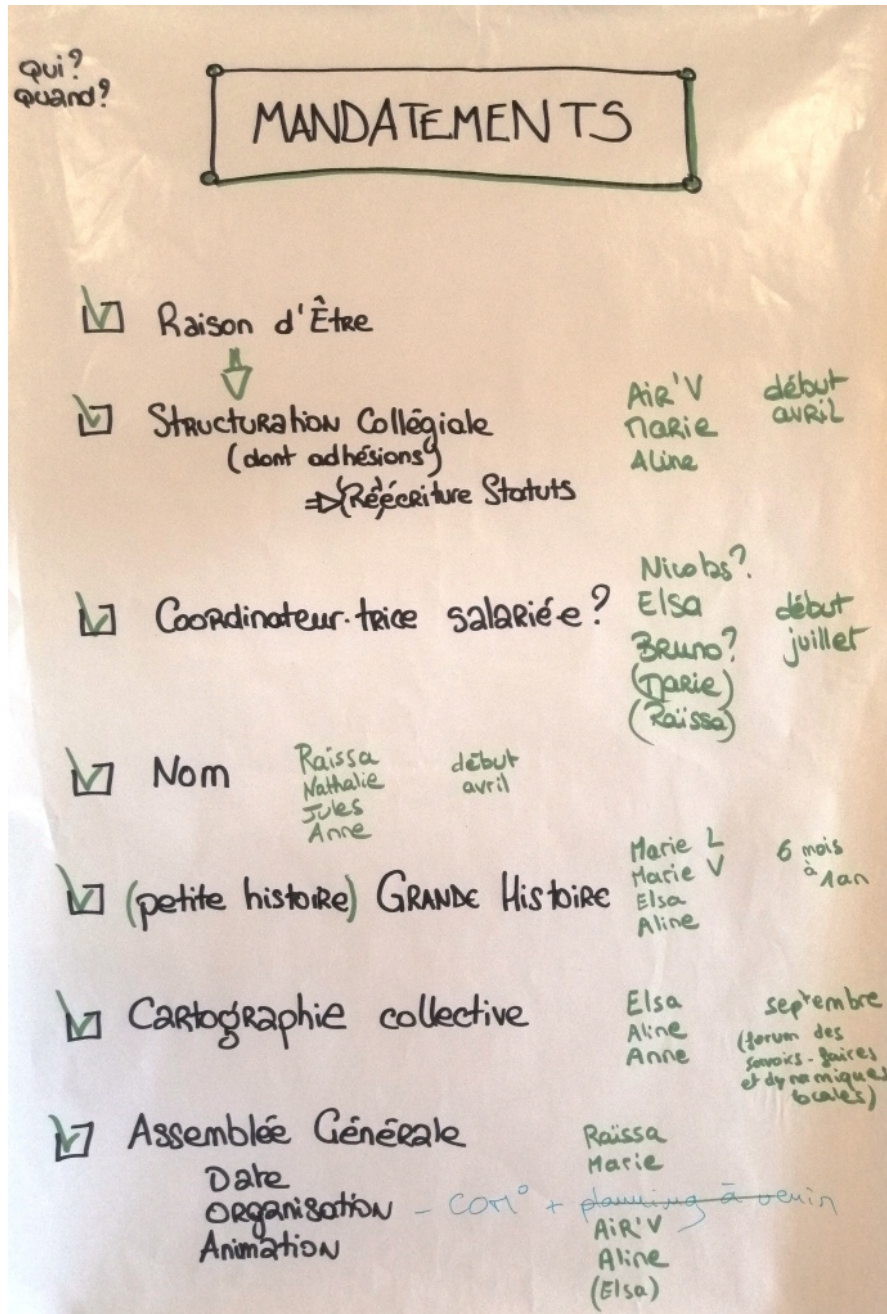 Qui?
Quand?
MANDATEMENTS
Raison d'Être
Structuration Collégiale
(dont adhésions)
⇒ (Ré)écriture Statuts
Air'V
Marie
Aline
début
avril
Coordinateur·trice salarié·e?
Nicolas?
Elsa
Bruno?
(Marie)
(Raïssa)
début
juillet
Nom
Raïssa
Nathalie
Jules
Anne
début
avril
(petite histoire) GRANDE Histoire
Marie L
Marie V
Elsa
Aline
6 mois
à
1an
Cartographie collective
Elsa
Aline
Anne
septembre
(forum des
savoirs-faires
et dynamiques
locales)
Assemblée Générale
Raïssa
Marie
Date
Organisation - COM° + planning à venir
Animation
AiR'V
Aline
(Elsa)